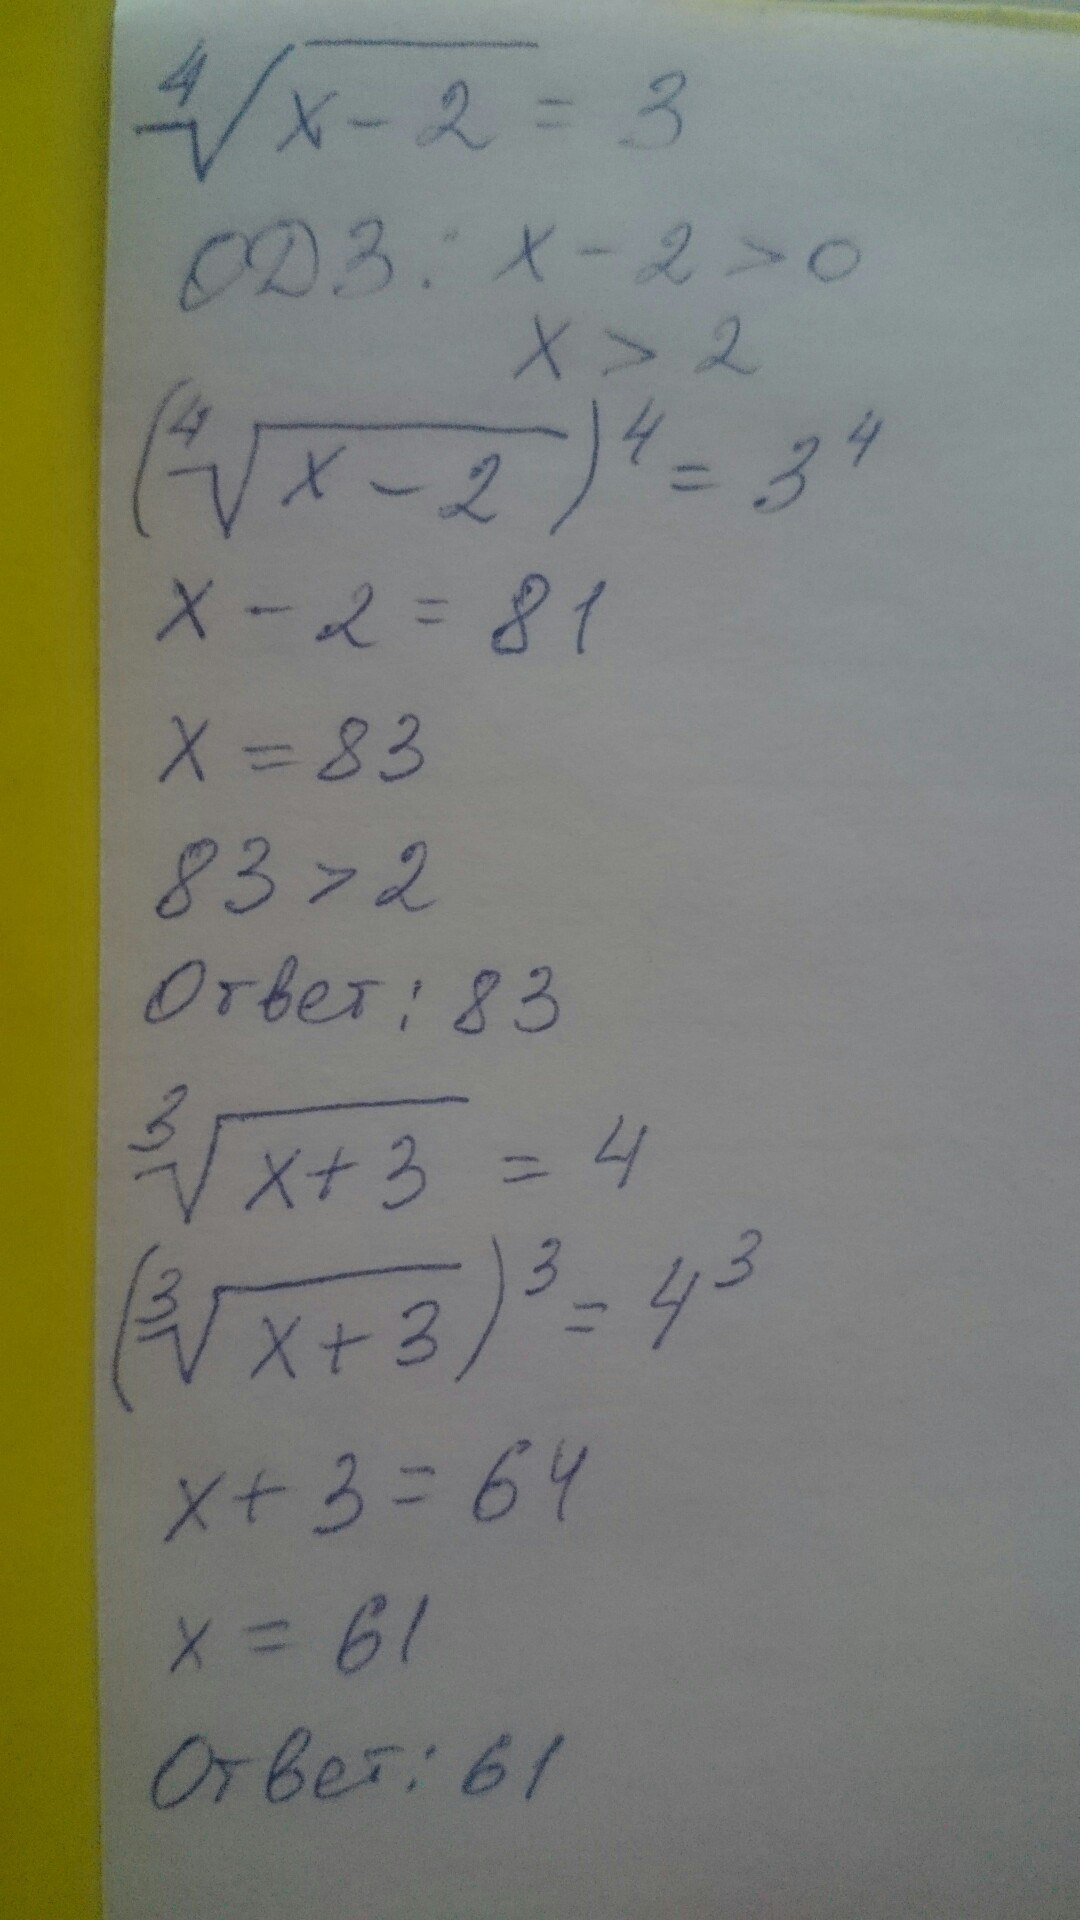 ⁴√(x-2) = 3
ОДЗ: x-2>0
x > 2
(⁴√(x-2))⁴ = 3⁴
x - 2 = 81
x = 83
83 > 2
Ответ: 83
³√(x+3) = 4
(³√(x+3))³ = 4³
x+3 = 64
x = 61
Ответ: 61